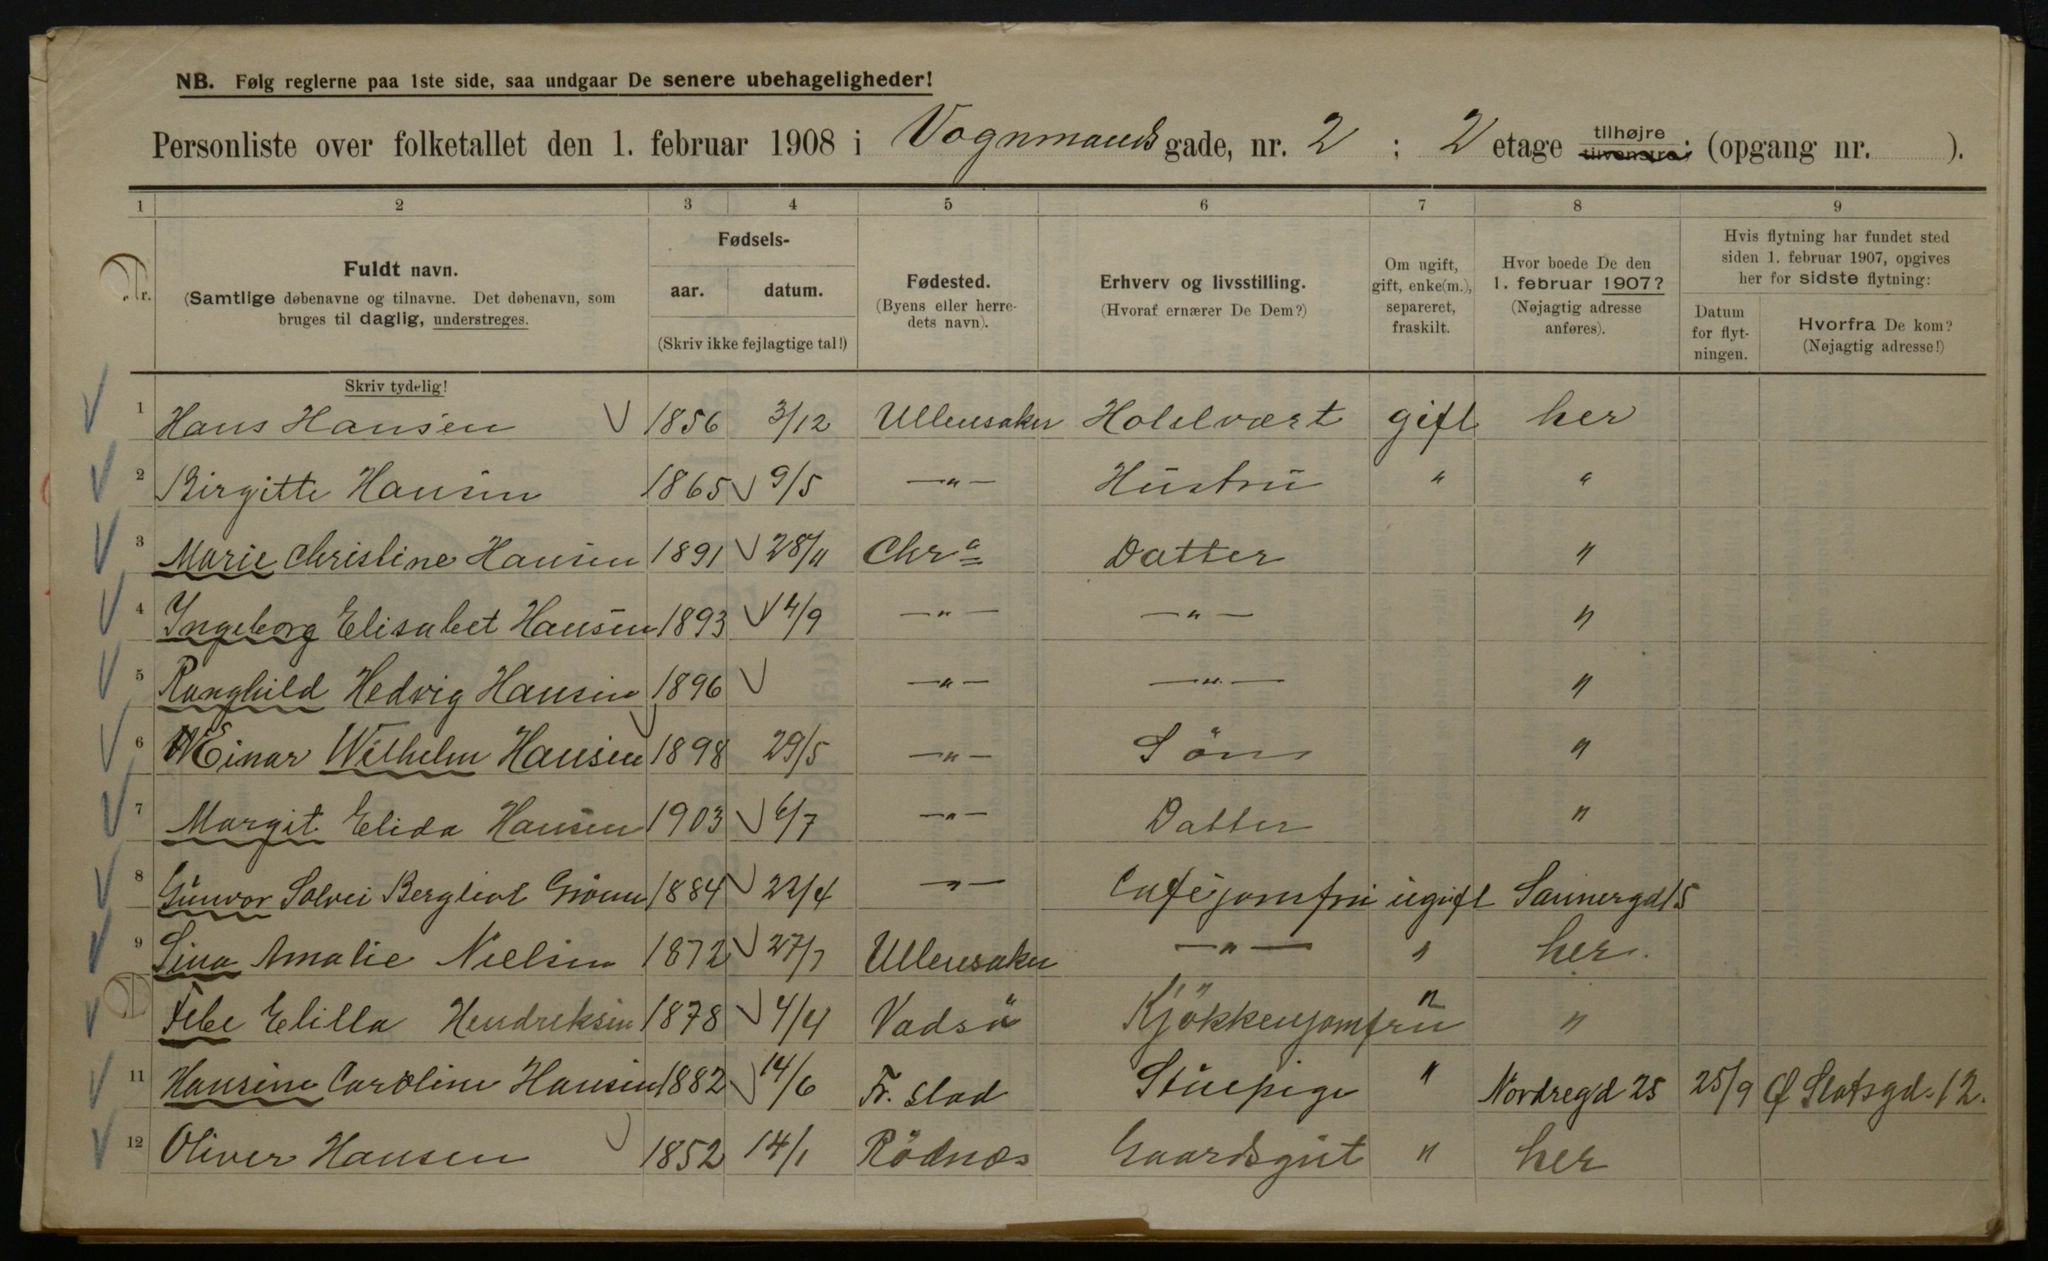 NB. Følg reglerne paa 1ste side, saa undgaar De senere ubehageligheder!
Personliste over folketallet den 1. februar 1908 i Vognmands gade, nr. 2 ; 2 etage tilhøjre tilvenstre; (opgang nr. ).
1 2 3 4 5 6 7 8 9
Nr. Fuldt navn. (Samtlige døbenavne og tilnavne. Det døbenavn, som bruges til daglig, understreges. Fødsels- aar. datum. (Skriv ikke fejlagtige tal!) Fødested. (Byens eller herredets navn). Erhverv og livsstilling. (Hvoraf ernærer De Dem?) Om ugift, gift, enke(m.), separeret, fraskilt. Hvor boede De den 1. februar 1907? (Nøjagtig adresse anføres). Hvis flytning har fundet sted siden 1. februar 1907, opgives her for sidste flytning: Datum for flytningen. Hvorfra De kom? (Nøjagtig adresse!)
Skriv tydelig!
1 Hans Hansen 1856 3/12 Ullensaker Hotelvært gift her
2 Birgitte Hansen 1865 9/5 —"— Hustru " "
3 Marie Christine Hansen 1891 28/11 Chra Datter "
4 Ingeborg Elisabet Hansen 1893 14/9 —"— —"— "
5 Ranghild Hedvig Hansen 1896 —"— —"— "
6 Einar Wilhelm Hansen 1898 29/5 —"— Søn "
7 Margit Elida Hansen 1903 6/7 —"— Datter "
8 Gunvor Solvei Bergliot 1884 22/4 —"— Cafejomfru ugift Sannergd 15
9 Lina Amalie Nielsen 1872 27/7 Ullensaker —"— " her.
Febe Elilla Hendreksen 1878 4/4 Vadsö Kjökkenjomfru " "
11 Hansine Caroline Hansen 1882 14/6 Fr. stad Stuepige " Nordregd 25 25/9 Ø Slotsgd. 12.
12 Oliver Hansen 1852 14/1 Rödnæs Gaardsgut " her